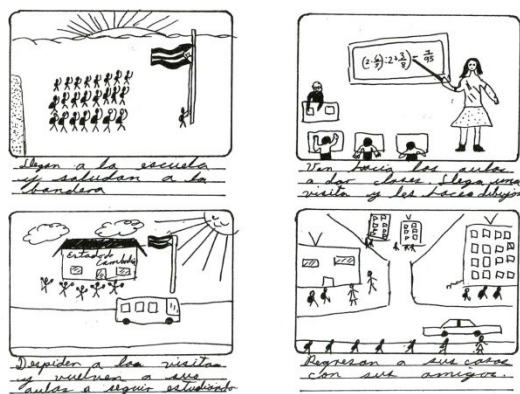 Llegan a la escuela
y saludan a la
bandera
Van hacia las aulas
a dar clases. Llega una
visita y les hace dibujos
Estado de
Cambodia
Despiden a las visitas
y vuelven a sus
aulas a seguir estudiando
Regresan a sus casas
con sus amigos.